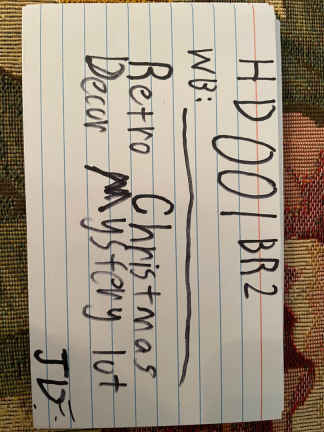 HD001BR2
WB:
Retro Christmas
Decor Mystery lot